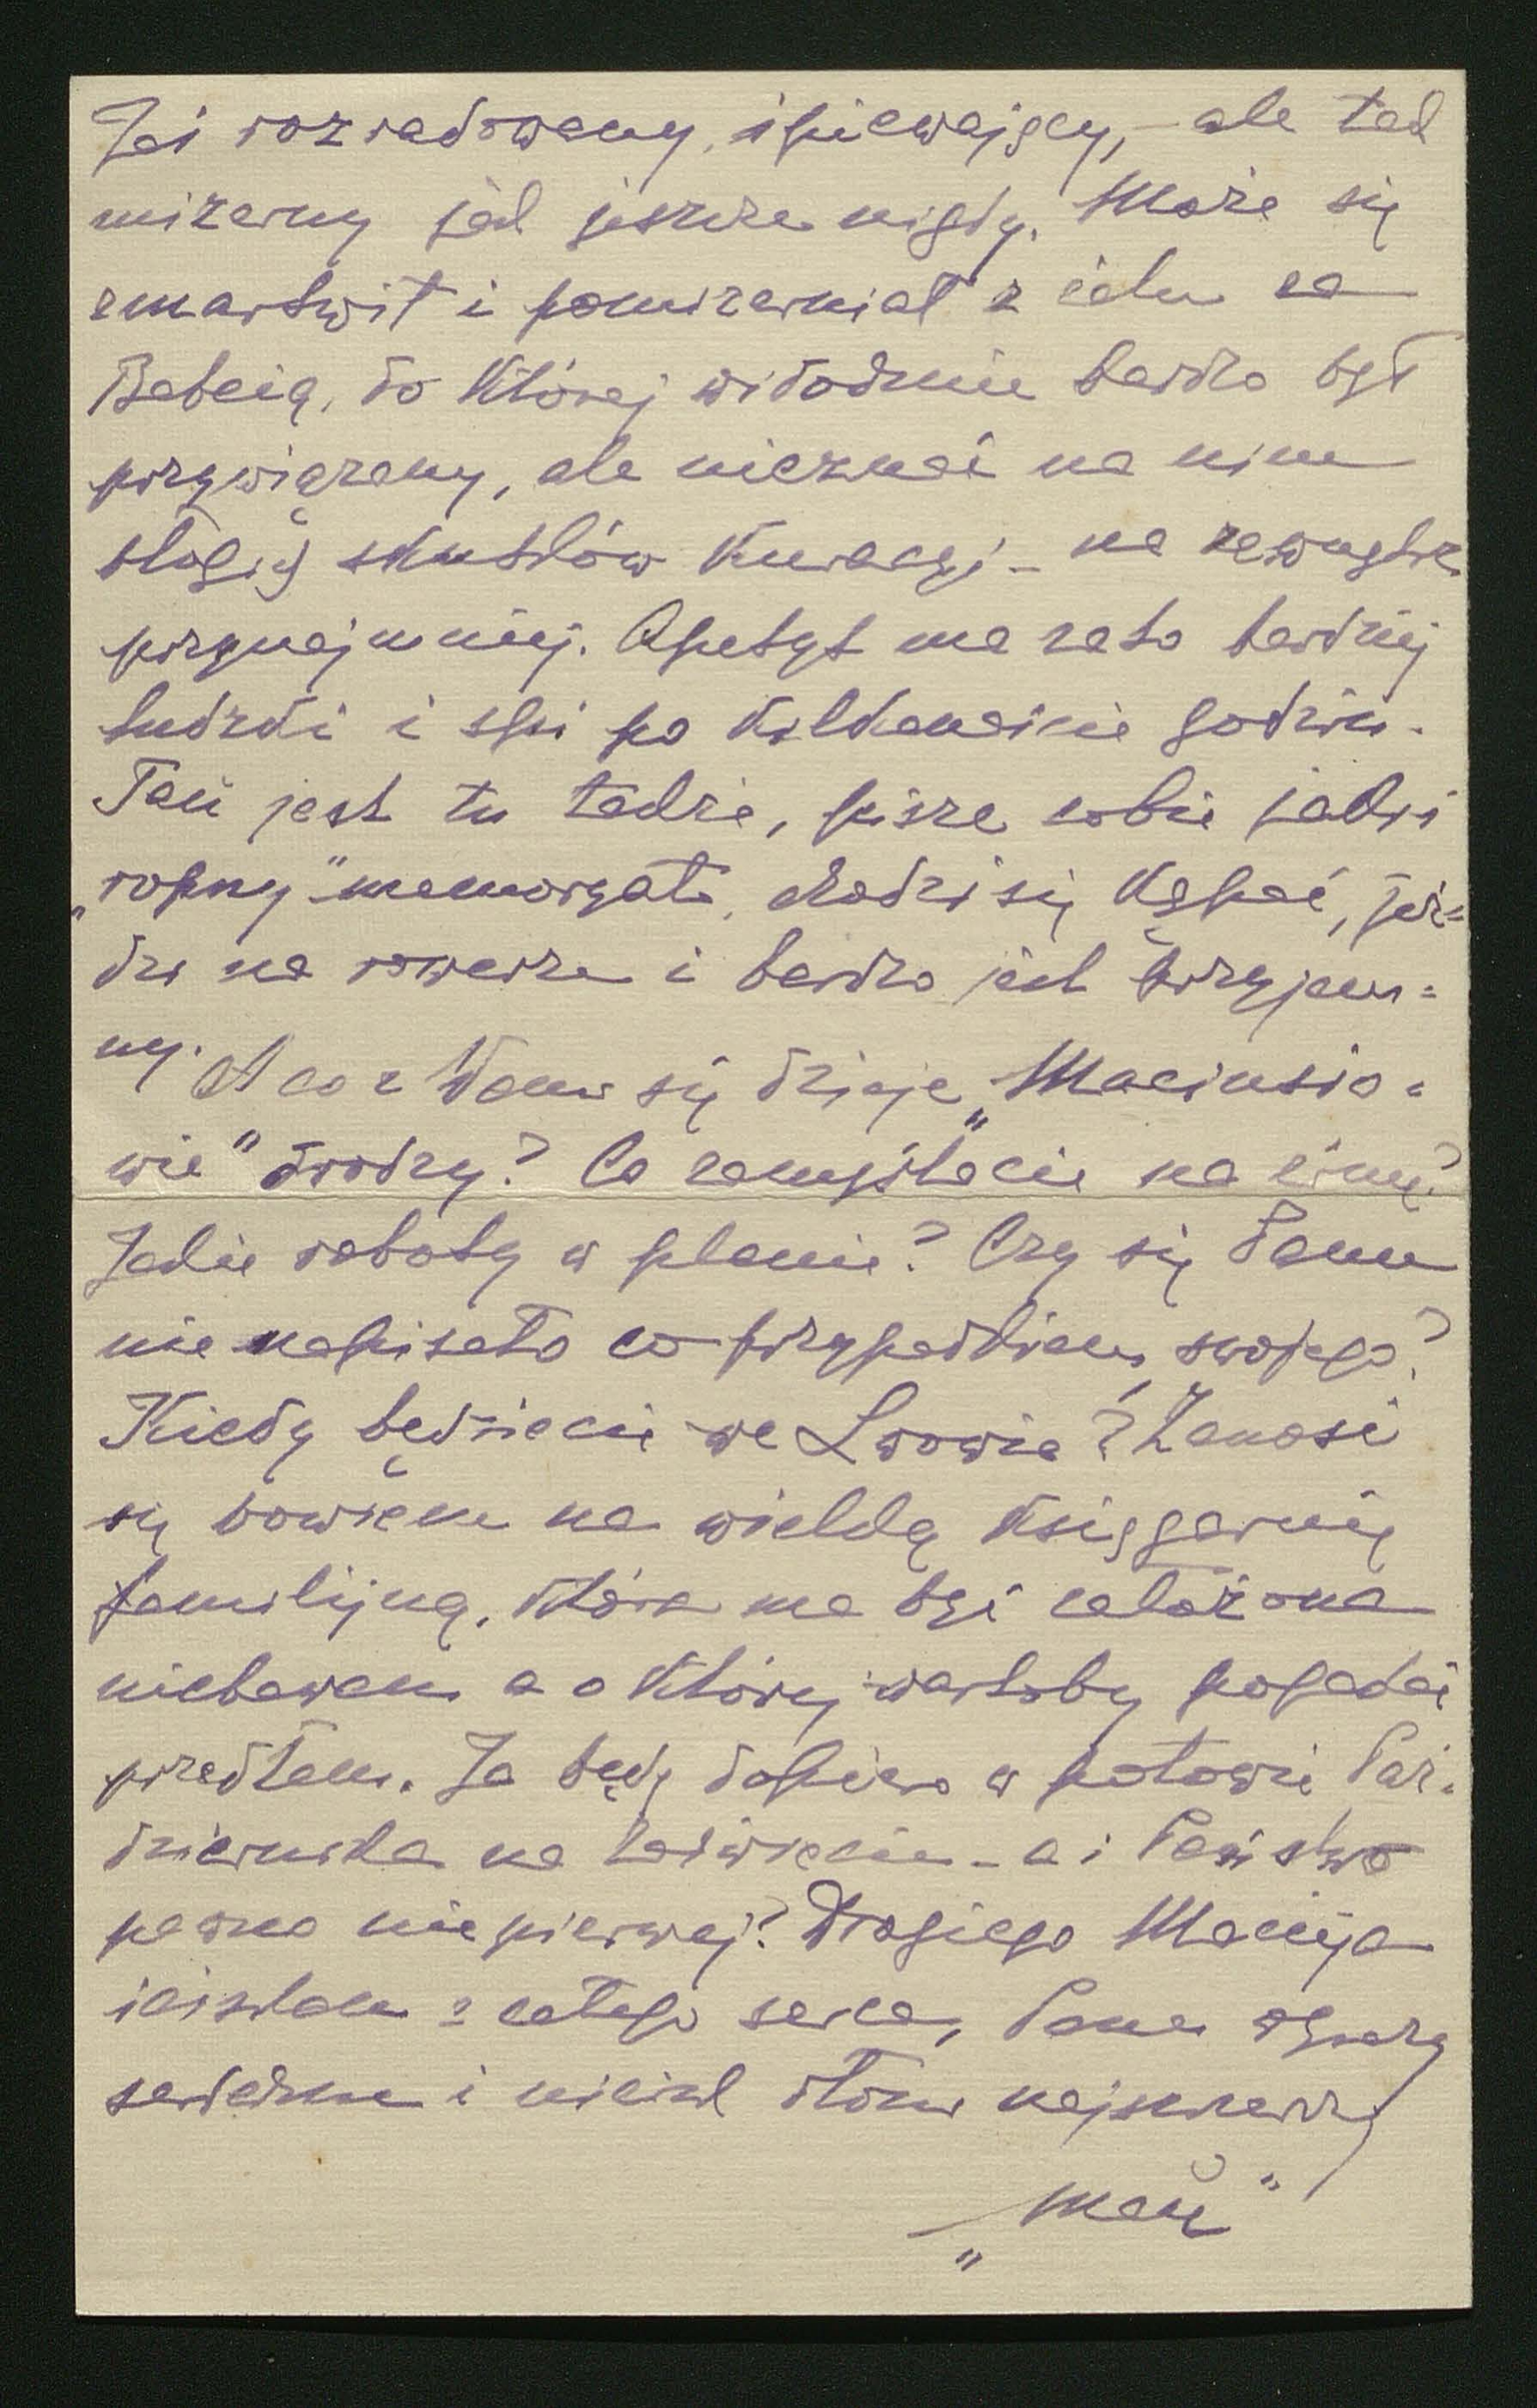 Jaś rozradowany, śpiewający, – ale tak
mizerny jak jeszcze nigdy. Może się
zmartwił i pomizerniał z żalu za
Babcią, do której widocznie bardzo był
przywiązany, ale nieznać na nim
błogich skutków kuracyi – na zewnątrz
przynajmniej. Apetyt ma zato bardziej
ludzki i śpi po kilkanaście godzin.
Pań jest tu także, pisze sobie jakiś
„ropny" memoryał, chodzi się kąpać, jeź=
dzi na rowerze i bardzo jest przyjem=
ny. A co z Wami się dzieje „Maciusio=
wie" drodzy? Co zamyślacie na zimę?
Jakie roboty w planie? Czy się Panu
nie napisało co przypadkiem swojego?
Kiedy będziecie we Lwowie? Zanosi
się bowiem na wielką księgarnię
familijną, która ma być założona
niebawem a o której wartoby pogadać
przedtem. Ja będę dopiero w połowie Paź=
dziernika na – a i Państwo
pewno nie pierwej? Drogiego Macieja
ściskam z całego serca, Panu
serdeczne i uścisk dłoni najszczerszy
„Mań"